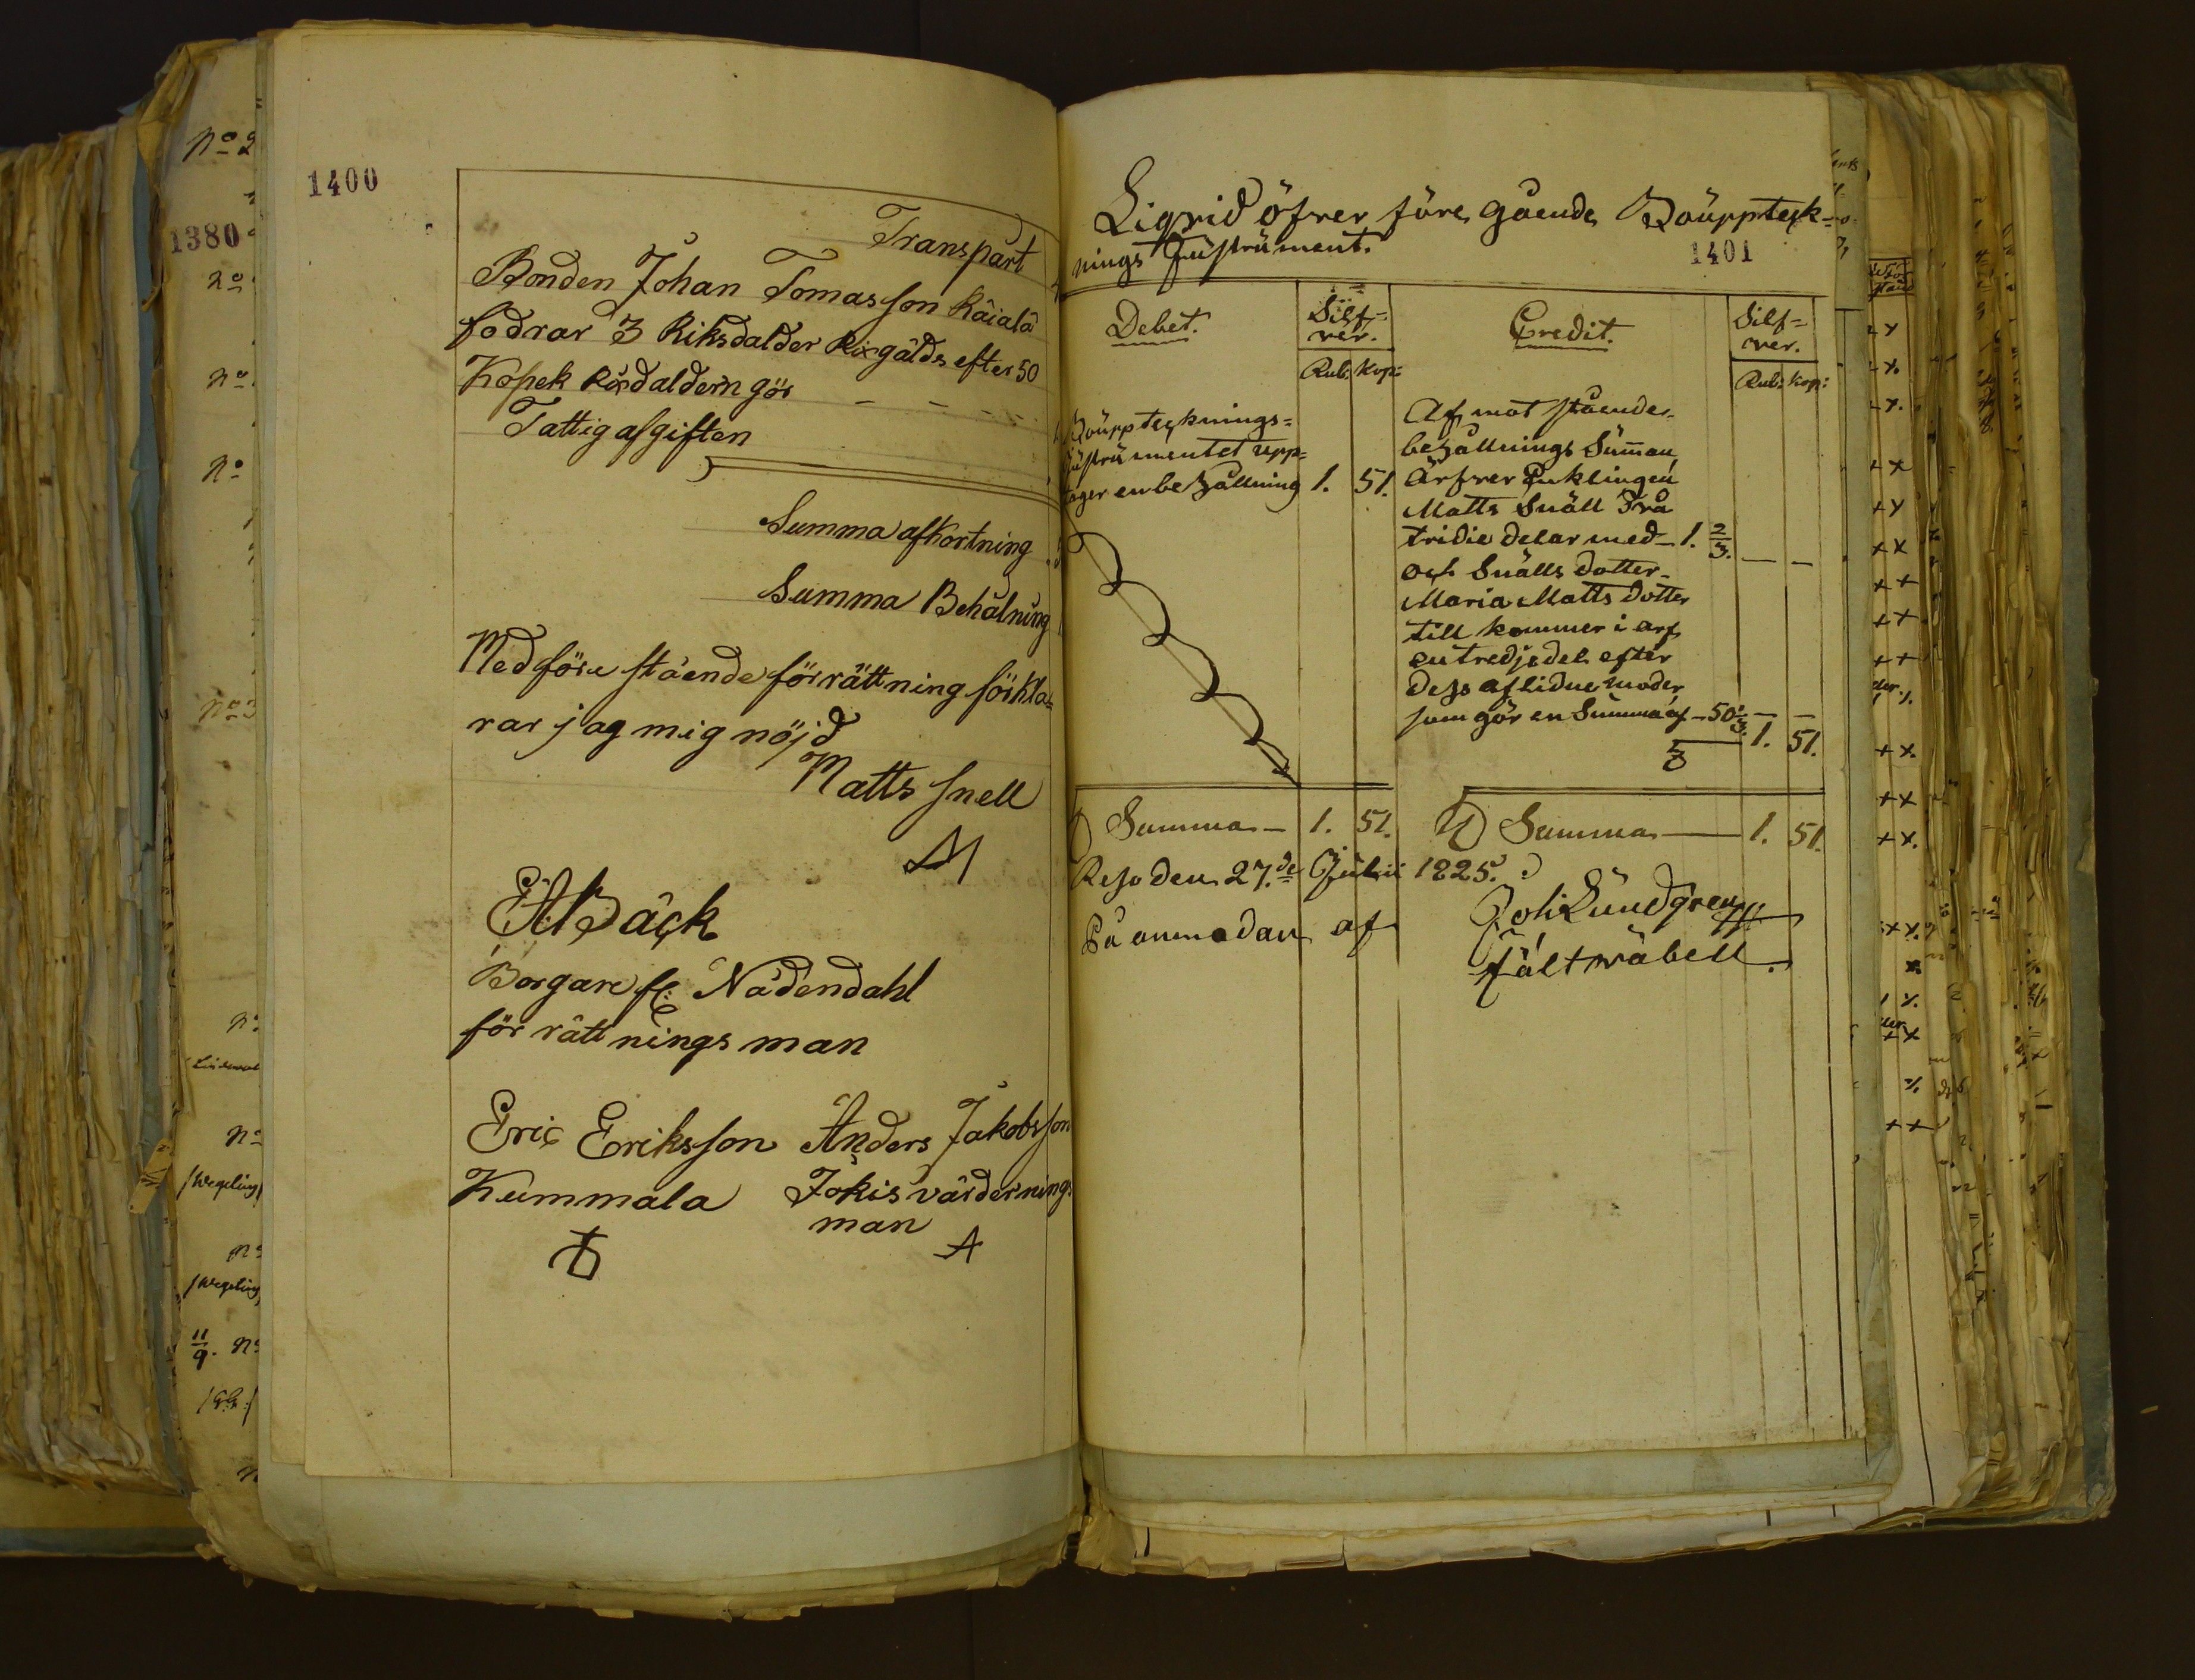 1400
Transpårt
Bonden Johan Tomasson Käiala
fodrar 3 Riksdalder Rixgälds efter 50
Kopek Rixdaldern gör
Fattig afgiften
Summa afkortning
Summa Behålning
Med före stående förrättning förkla=
rar jag mig nöjd
Matts snell
M
Bäck
Borgare fr: Nådendahl
för rättnings man
Eric Eriksson Anders Jakobsson
Kummala Jokis värdernings
man
A
Liqvid öfver före gående Boupptek=
nings Instrument.
1401
Debet.
Silf=
ver.
Credit.
Silf=
ver.
Rub: Kop:
Rub: Kop:
Bouppteknings=
Instrumentet upp=
tager en behållning 1. 51.
Af mot stående
behållnings Summan
Ärfver Enklingen
Matts Snäll Två
tridie delar med 1. 2/3.
och Snälls dotter
Maria Matts dotter
till kommer i arf
en tredje del efter
dess aflidne moder
som gör en Summa af 50 1/3.
1. 51.
Summa 1. 51.
Summa 1. 51.
Reso den 27.de Julii 1825.
På anmodan af
Joh: Lundgren
fältwäbell.
1380
No 2
No
No
No
No 3
No
No
/Wegelius/
No
/Wegelius/
11/9. No